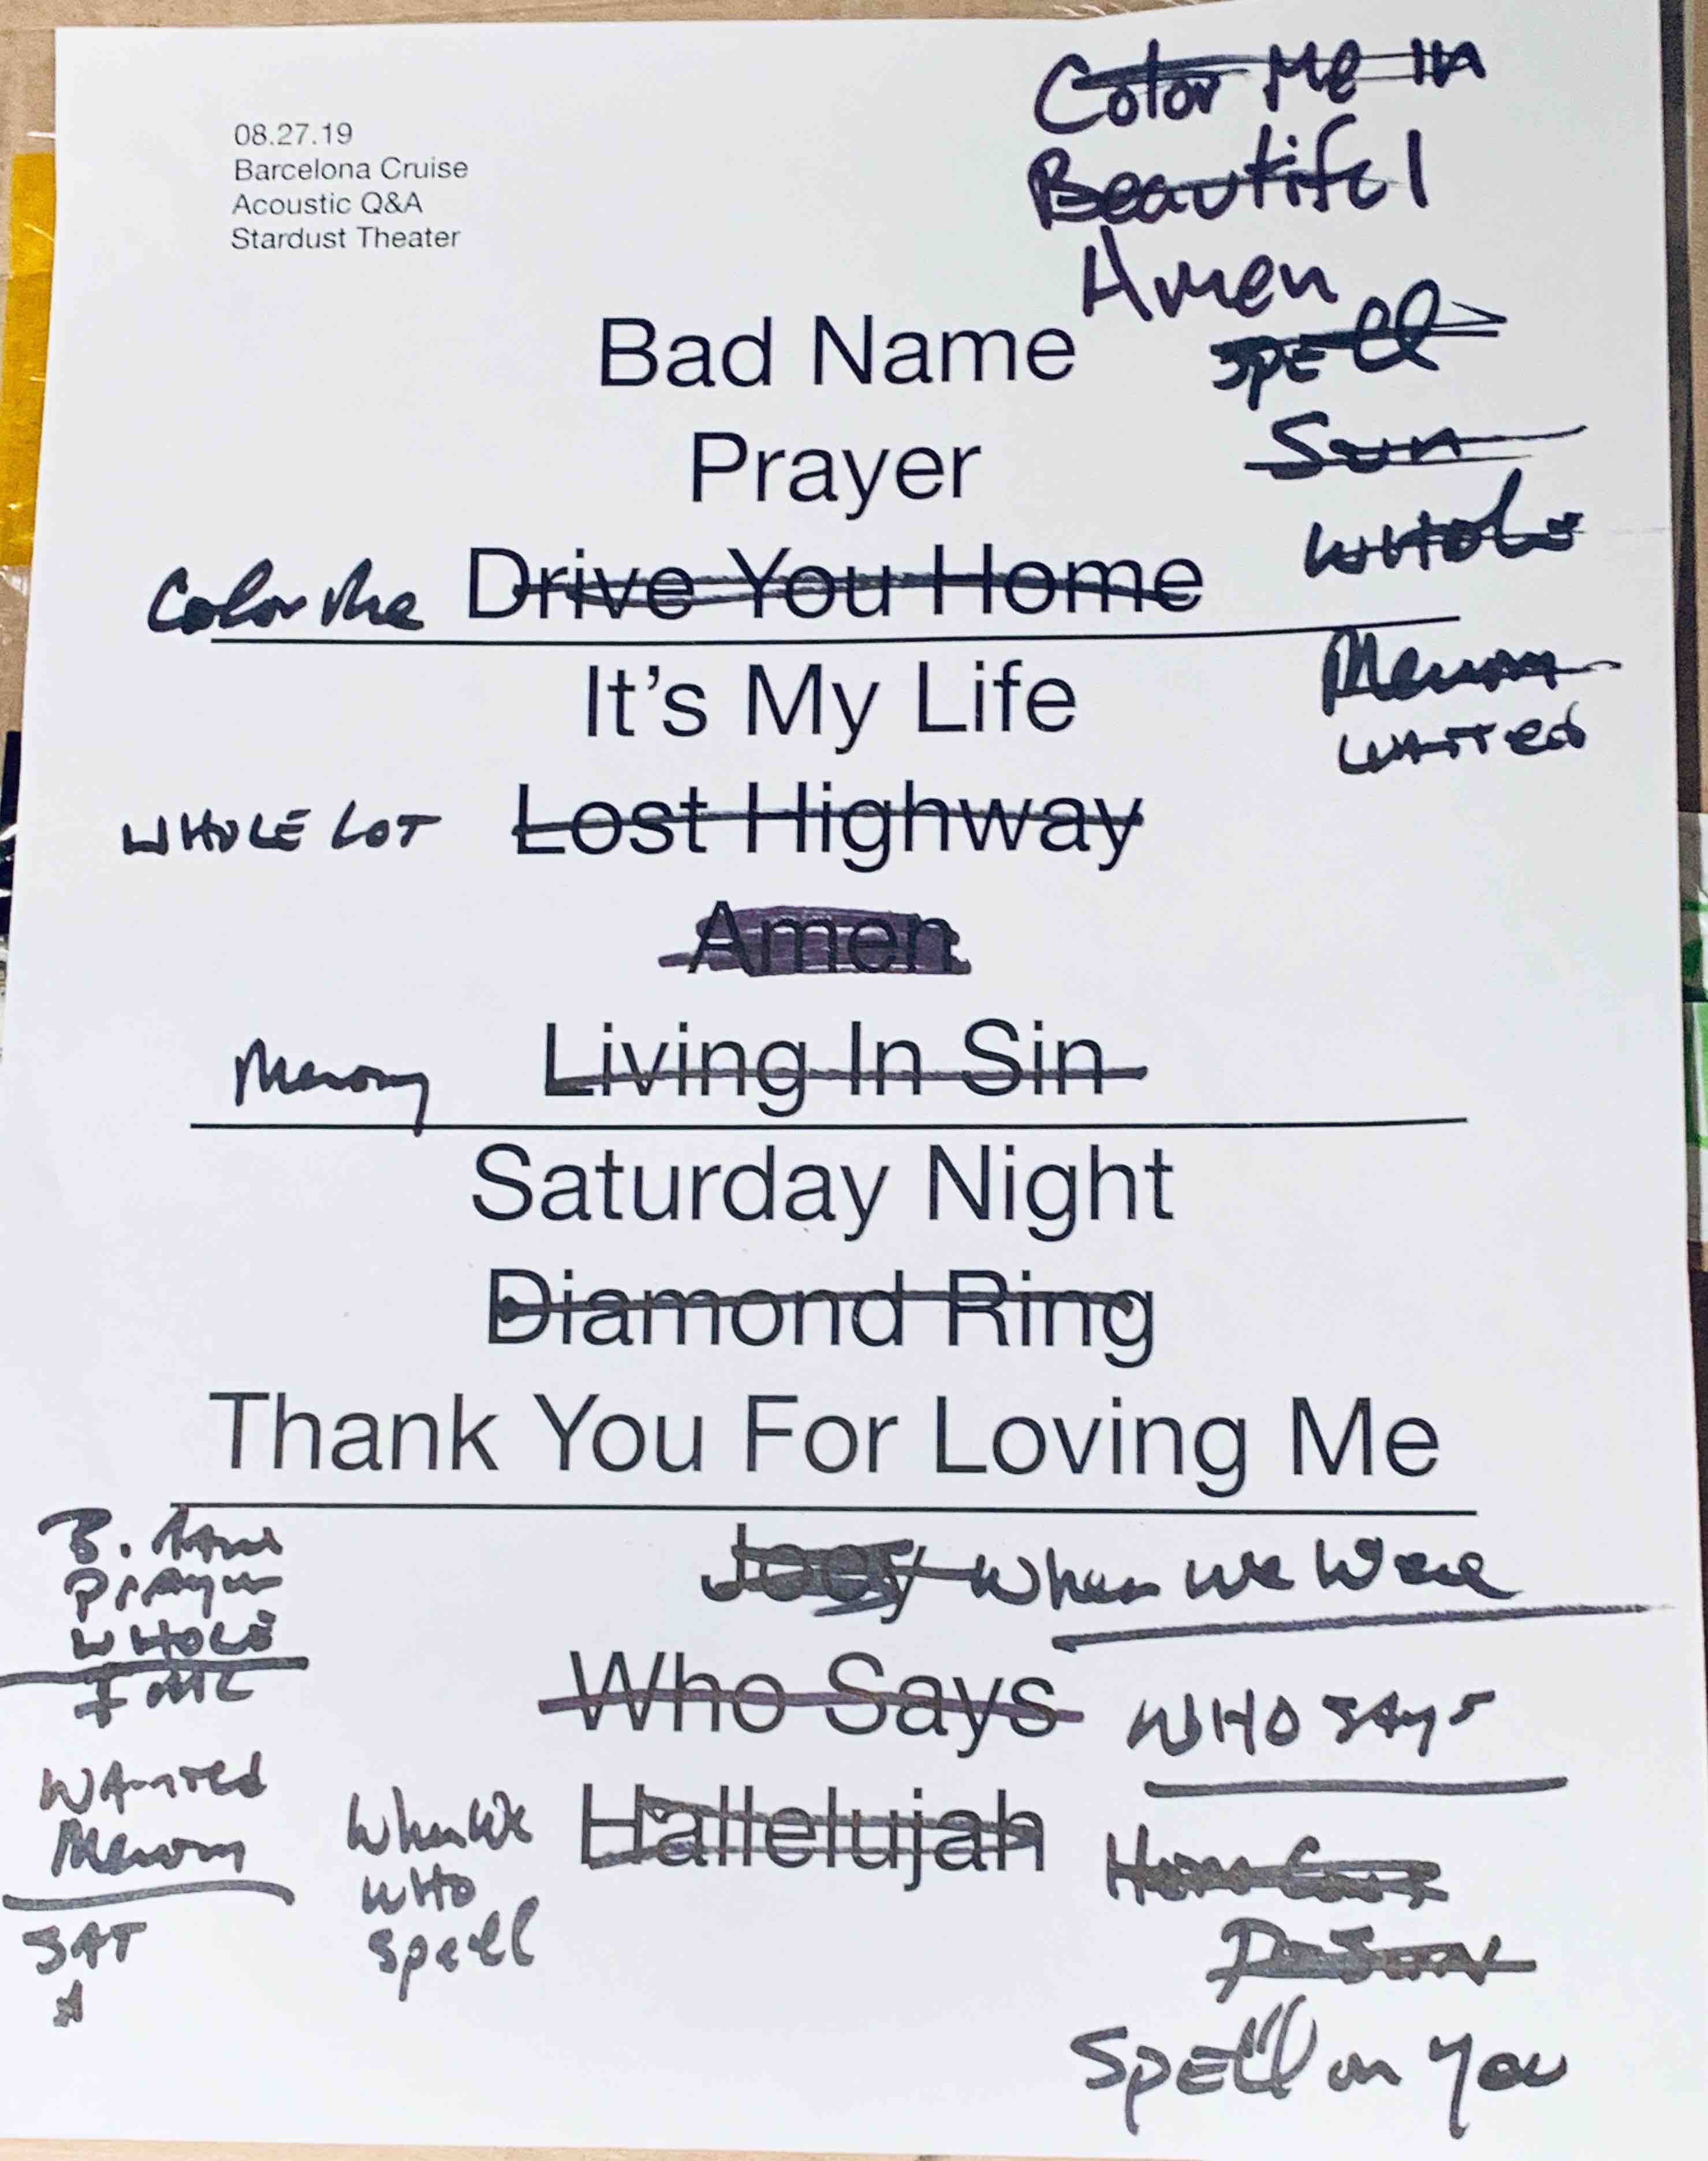 08.27.19
Barcelona Cruise
Acoustic Q&A
Stardust Theater
Color Me In
Beautiful
Amen
Bad Name
SPEll
Prayer
Sun
WHOLE
Color Me Drive You Home
It's My Life
Memory
WANTED
WHOLE LOT Lost Highway
Amen
Memory Living In Sin
Saturday Night
Diamond Ring
Thank You For Loving Me
B. Name
Prayer
WHOLE
IMC
Joey When We Were
Who Says WHO SAYS
WANTED
Memory
SAT
When We Hallelujah
WHO
Spell
Spell on You